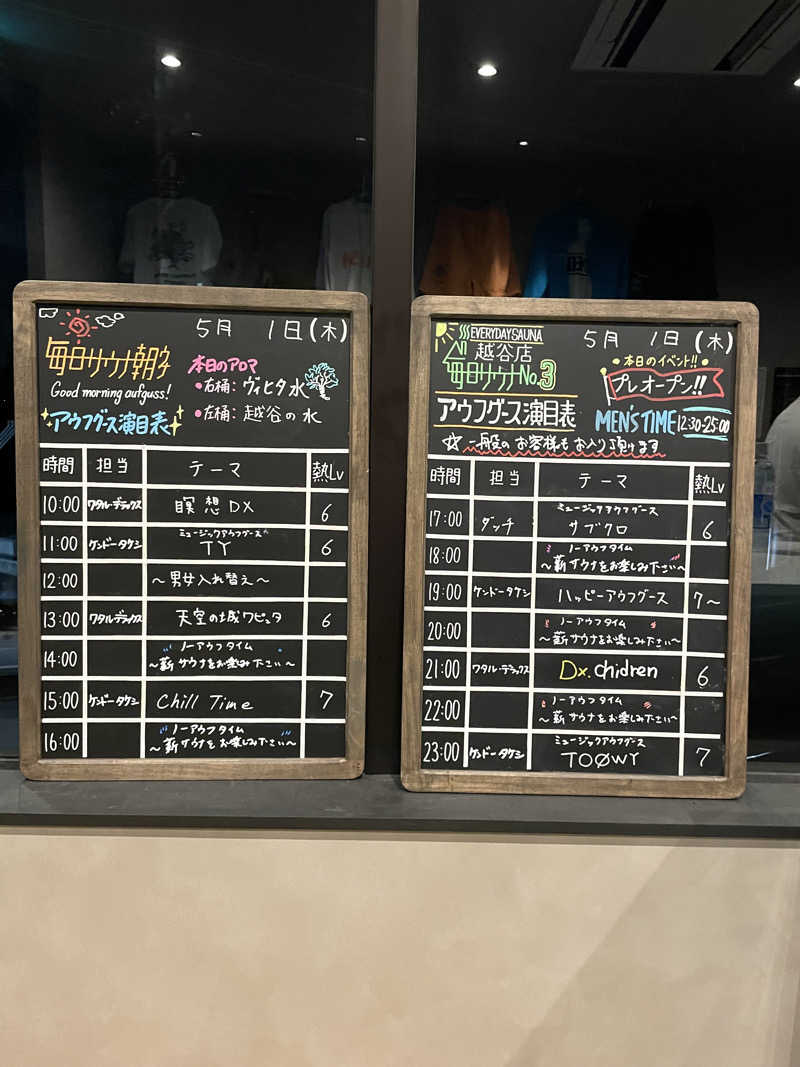 5月 1日(木)
毎日サウナ朝子
Good morning aufguss!
アウフグース演目表
本日のアロマ
•右桶: ヴィヒタ水
•左桶: 越谷の水
時間 担当 テーマ 熱Lv
10:00 ワタル・デラックス 瞑想DX 6
11:00 ケンドータケシ ミュージックアウフグース TY 6
12:00 〜男女入れ替え〜
13:00 ワタルデラックス 天空の城ワピュタ 6
14:00 ノーアウフタイム 〜薪サウナをお楽しみ下さい〜
15:00 ケンドータケシ Chill Time 7
16:00 ノーアウフタイム 〜薪サウナをお楽しみ下さい〜
EVERYDAY SAUNA
越谷店
毎日サウナNo.3
アウフグース演目表
5月 1日(木)
•本日のイベント!!•
プレオープン!!
MEN'S TIME 12:30-25:00
☆一般のお客様もお入り頂けます
時間 担当 テーマ 熱Lv
17:00 ダンチ ミュージックアウフグース サブクロ 6
18:00 ノーアウフタイム 〜薪サウナをお楽しみ下さい〜
19:00 ケンドータケシ ハッピーアウフグース 7〜
20:00 ノーアウフタイム 〜薪サウナをお楽しみ下さい〜
21:00 ワタル・デラックス Dx.chidren 6
22:00 ノーアウフタイム 〜薪サウナをお楽しみ下さい〜
23:00 ケンドータケシ ミュージックアウフグース TOØWY 7